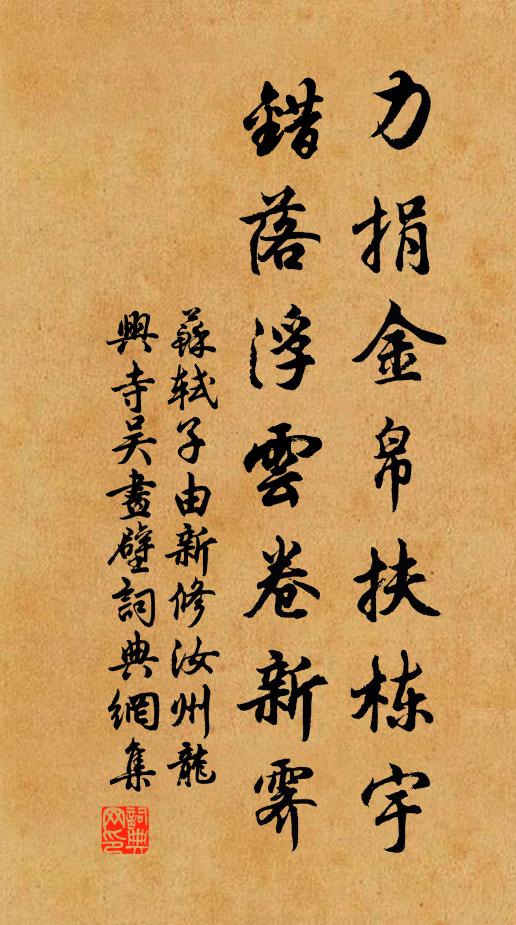 力捐金帛扶栋宇
錯落浮雲卷新霽
蘇軾子由新修汝州龍
興寺吴畫壁詞典網集
詞典
网印